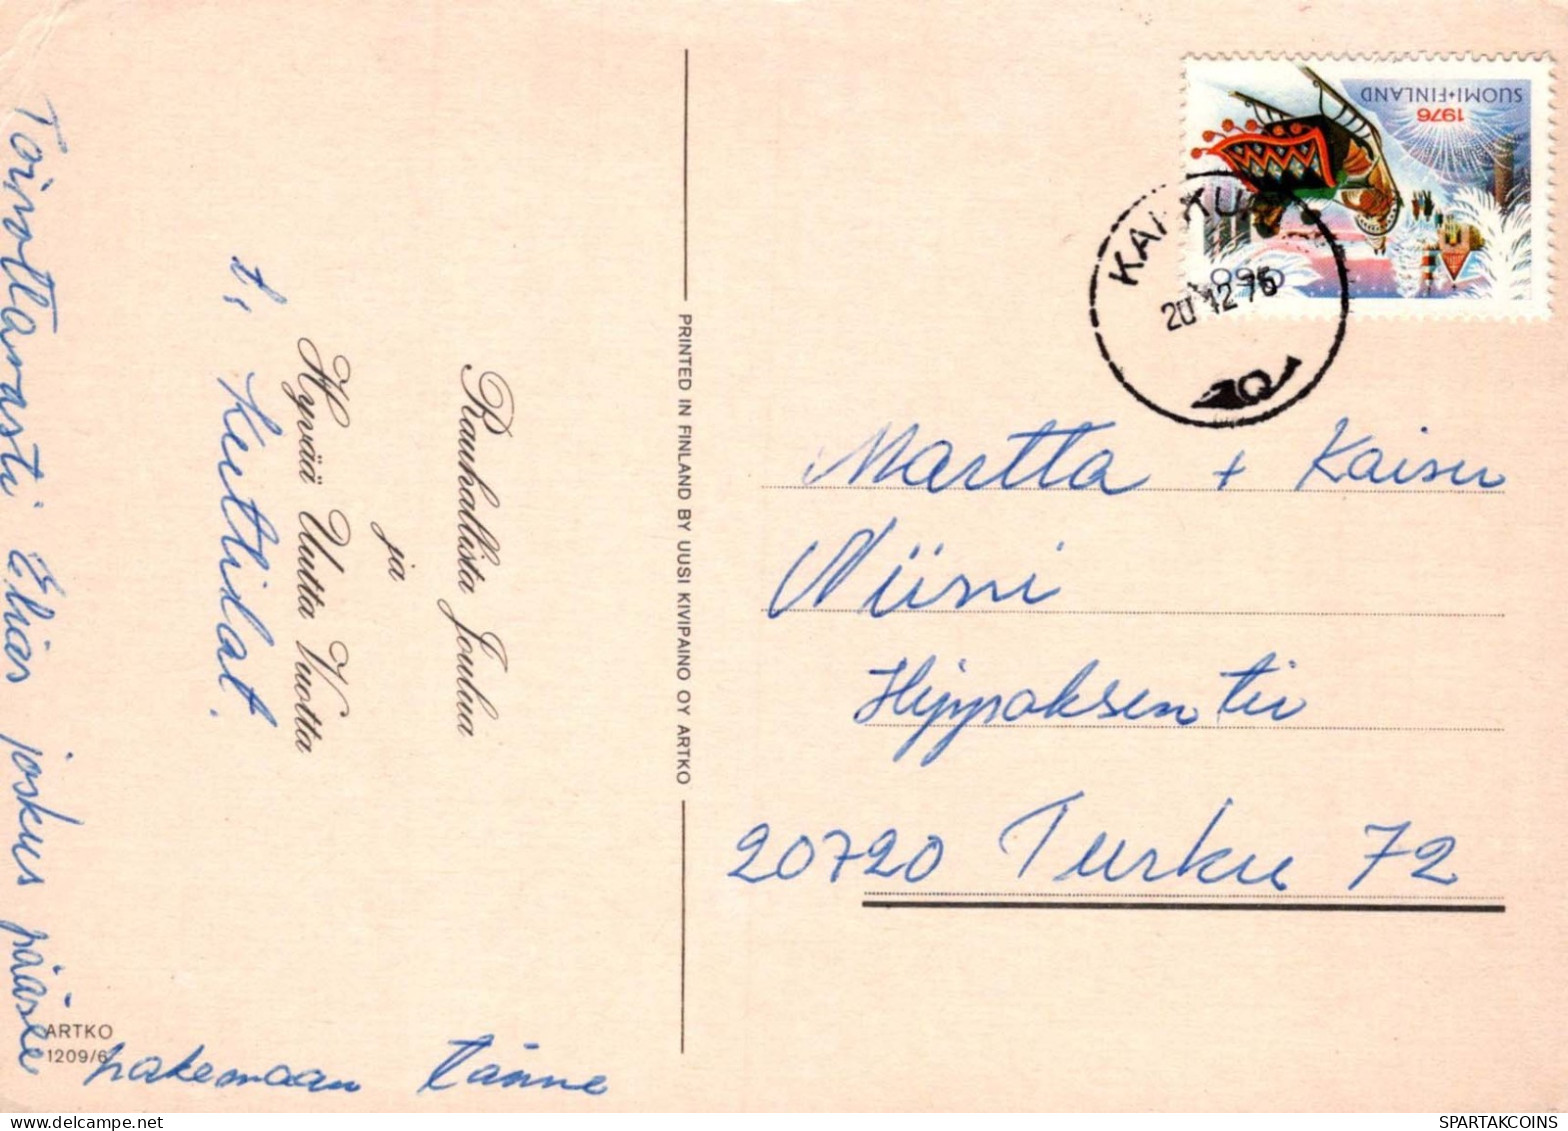 Rauhallista Joulua
ja
Hyvää Uutta Vuotta
t.
Toivottavasti Elias joskus pääsee
hakemaan tänne
ARTKO
1209/6
PRINTED IN FINLAND BY UUSI KIVIPAINO OY ARTKO
SUOMI•FINLAND
1976
20 12 76
Martta + Kaisu
Niini
Hippoksentie
20720 Turku 72
SPARTAKCOINS